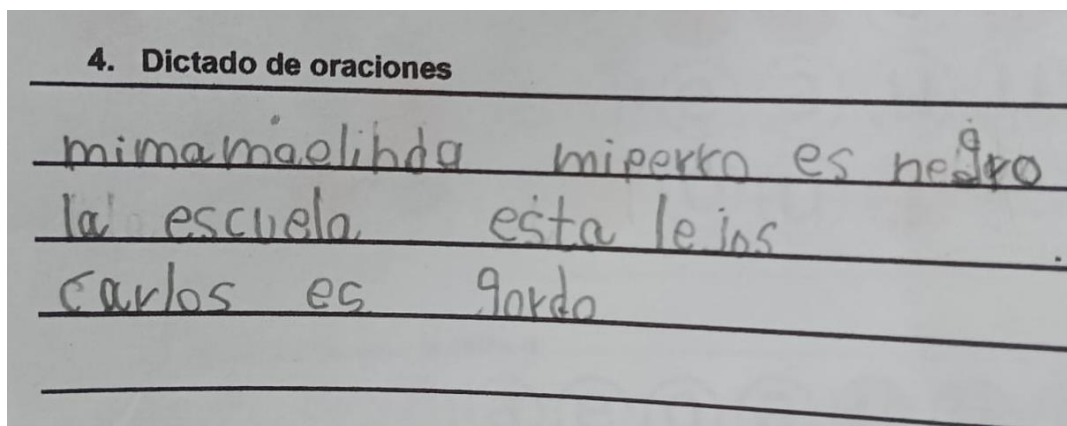 4. Dictado de oraciones
mimamaelinda miperro es negro
la escuela esta lejos
carlos es gordo